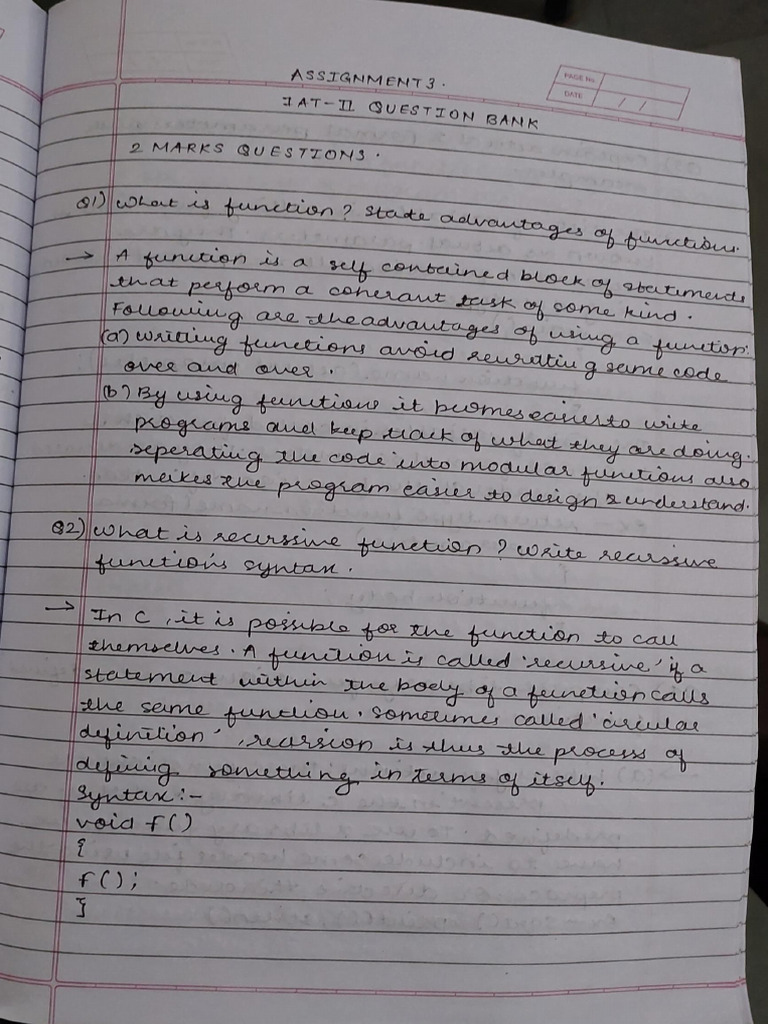 ASSIGNMENT 3.
PAGE No.
DATE / /
IAT-II QUESTION BANK
2 MARKS QUESTIONS.
Q1) What is function? State advantages of functions.
→ A function is a self contained block of statements
that perform a coherant task of some kind.
Following are the advantages of using a function:
(a) writing functions avoid rewrating same code
over and over.
(b) By using functions it becomes easier to write
programs and keep track of what they are doing.
seperating the code into modular functions also
makes the program easier to design & understand.
Q2) What is recurssive function? Write recurssive
function's syntax.
→ In C, it is possible for the function to call
themselves. A function is called 'recursive' if a
statement within the body of a function calls
the same function. Sometimes called 'circular
definition', recursion is thus the process of
defining something in terms of itself.
Syntax:-
void f()
{
f();
}